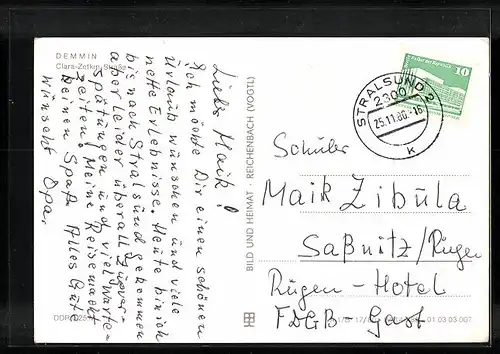 DEMMIN
Clara-Zetkin-Straße
Lieber Maik!
Ich möchte Dir einen schönen
Urlaub wünschen und viele
nette Erlebnisse. Heute bin ich
bis nach Stralsund gekommen
aber leider überall Zugver-
spätungen und viel Warte-
zeiten! Meine Reise macht
keinen Spaß. Alles Gute
wünscht Opa.
BILD UND HEIMAT · REICHENBACH (VOGTL)
STRALSUND 2
2300
25.11.80.-18
k
10
Schüler
Maik Zibula
Saßnitz/Rügen
Rügen-Hotel
FDGB-Gast
01 03 03 007